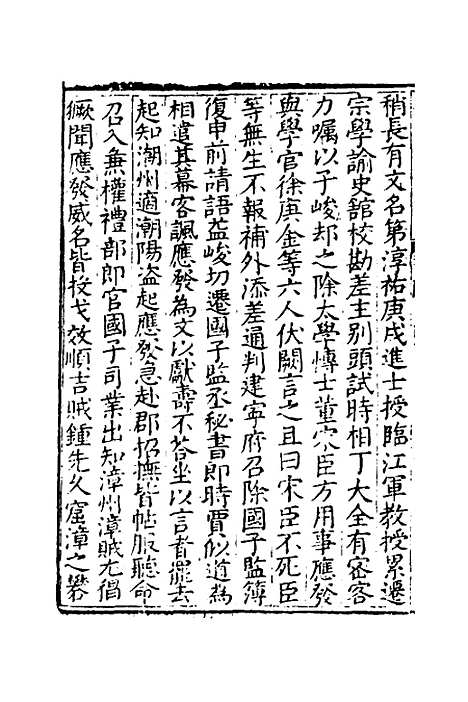 稍長有文名第淳祐庚戌進士授臨江軍教授累遷
宗學諭史舘校勘差主别頭試時相丁大全有宻客
力囑以子峻却之除太學博士董宋臣方用事應發
與學官徐庚金等六人伏闕言之且曰宋臣不死臣
等無生不報補外添差通判建寜府召除國子監簿
復申前請語益峻切遷國子監丞秘書郎時賈似道為
相遣其幕客諷應發為文以獻壽不荅坐以言者罷去
起知潮州適潮陽盗起應發急赴郡招撫皆帖服聽命
召入兼權禮部郎官國子司業出知漳州漳賊尤猖
獗聞應發威名皆投戈效順吉賊鍾先久窟漳之礬